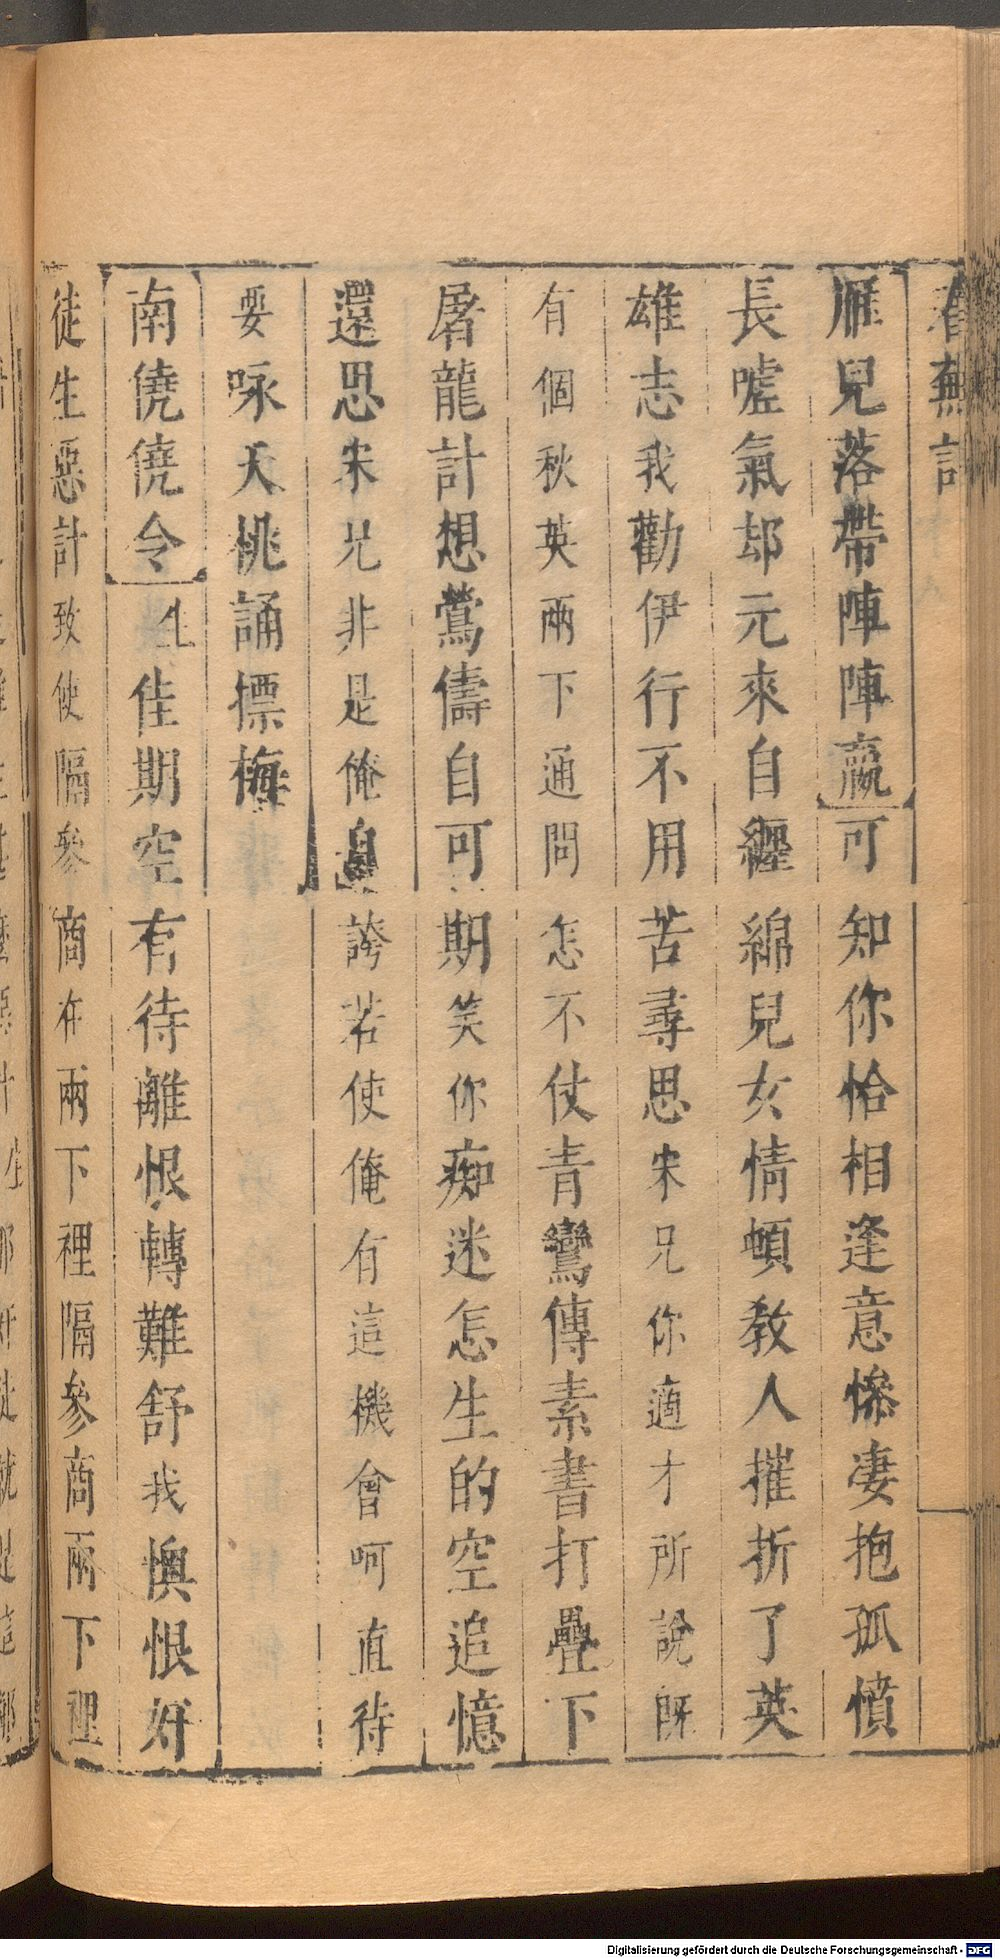 春蕪記
雁兒落帶陣陣贏可知你恰相逢意慘凄抱孤憤
長噓氣却元來自纏綿兒女情頓教人摧折了英
雄志我勸伊行不用苦尋思宋兄你適才所說既
有個秋英兩下通問怎不仗青鸞傳素書打疊下
屠龍計想鶯儔自可期笑你痴迷怎生的空追憶
還思宋兄非是俺自誇若使俺有這機會呵直待
要咏夭桃誦摽梅
南僥僥令生佳期空有待離恨轉難舒我懊恨奸
徒生惡計致使隔參商在兩下裡隔參商兩下裡
Digitalisierung gefördert durch die Deutsche Forschungsgemeinschaft - DFG